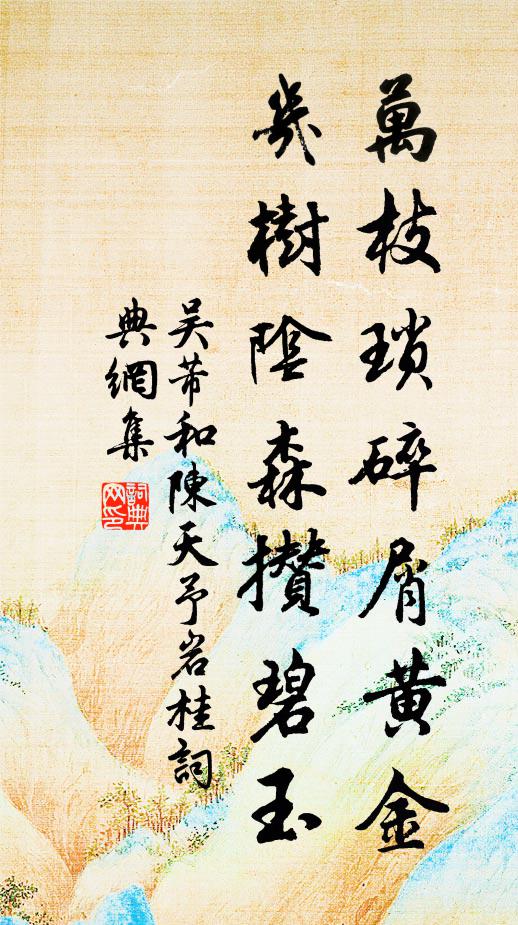 萬枝瑣碎屑黃金
幾樹陰森攢碧玉
吳芾和陳天予岩桂詞
典網集
詞典網印